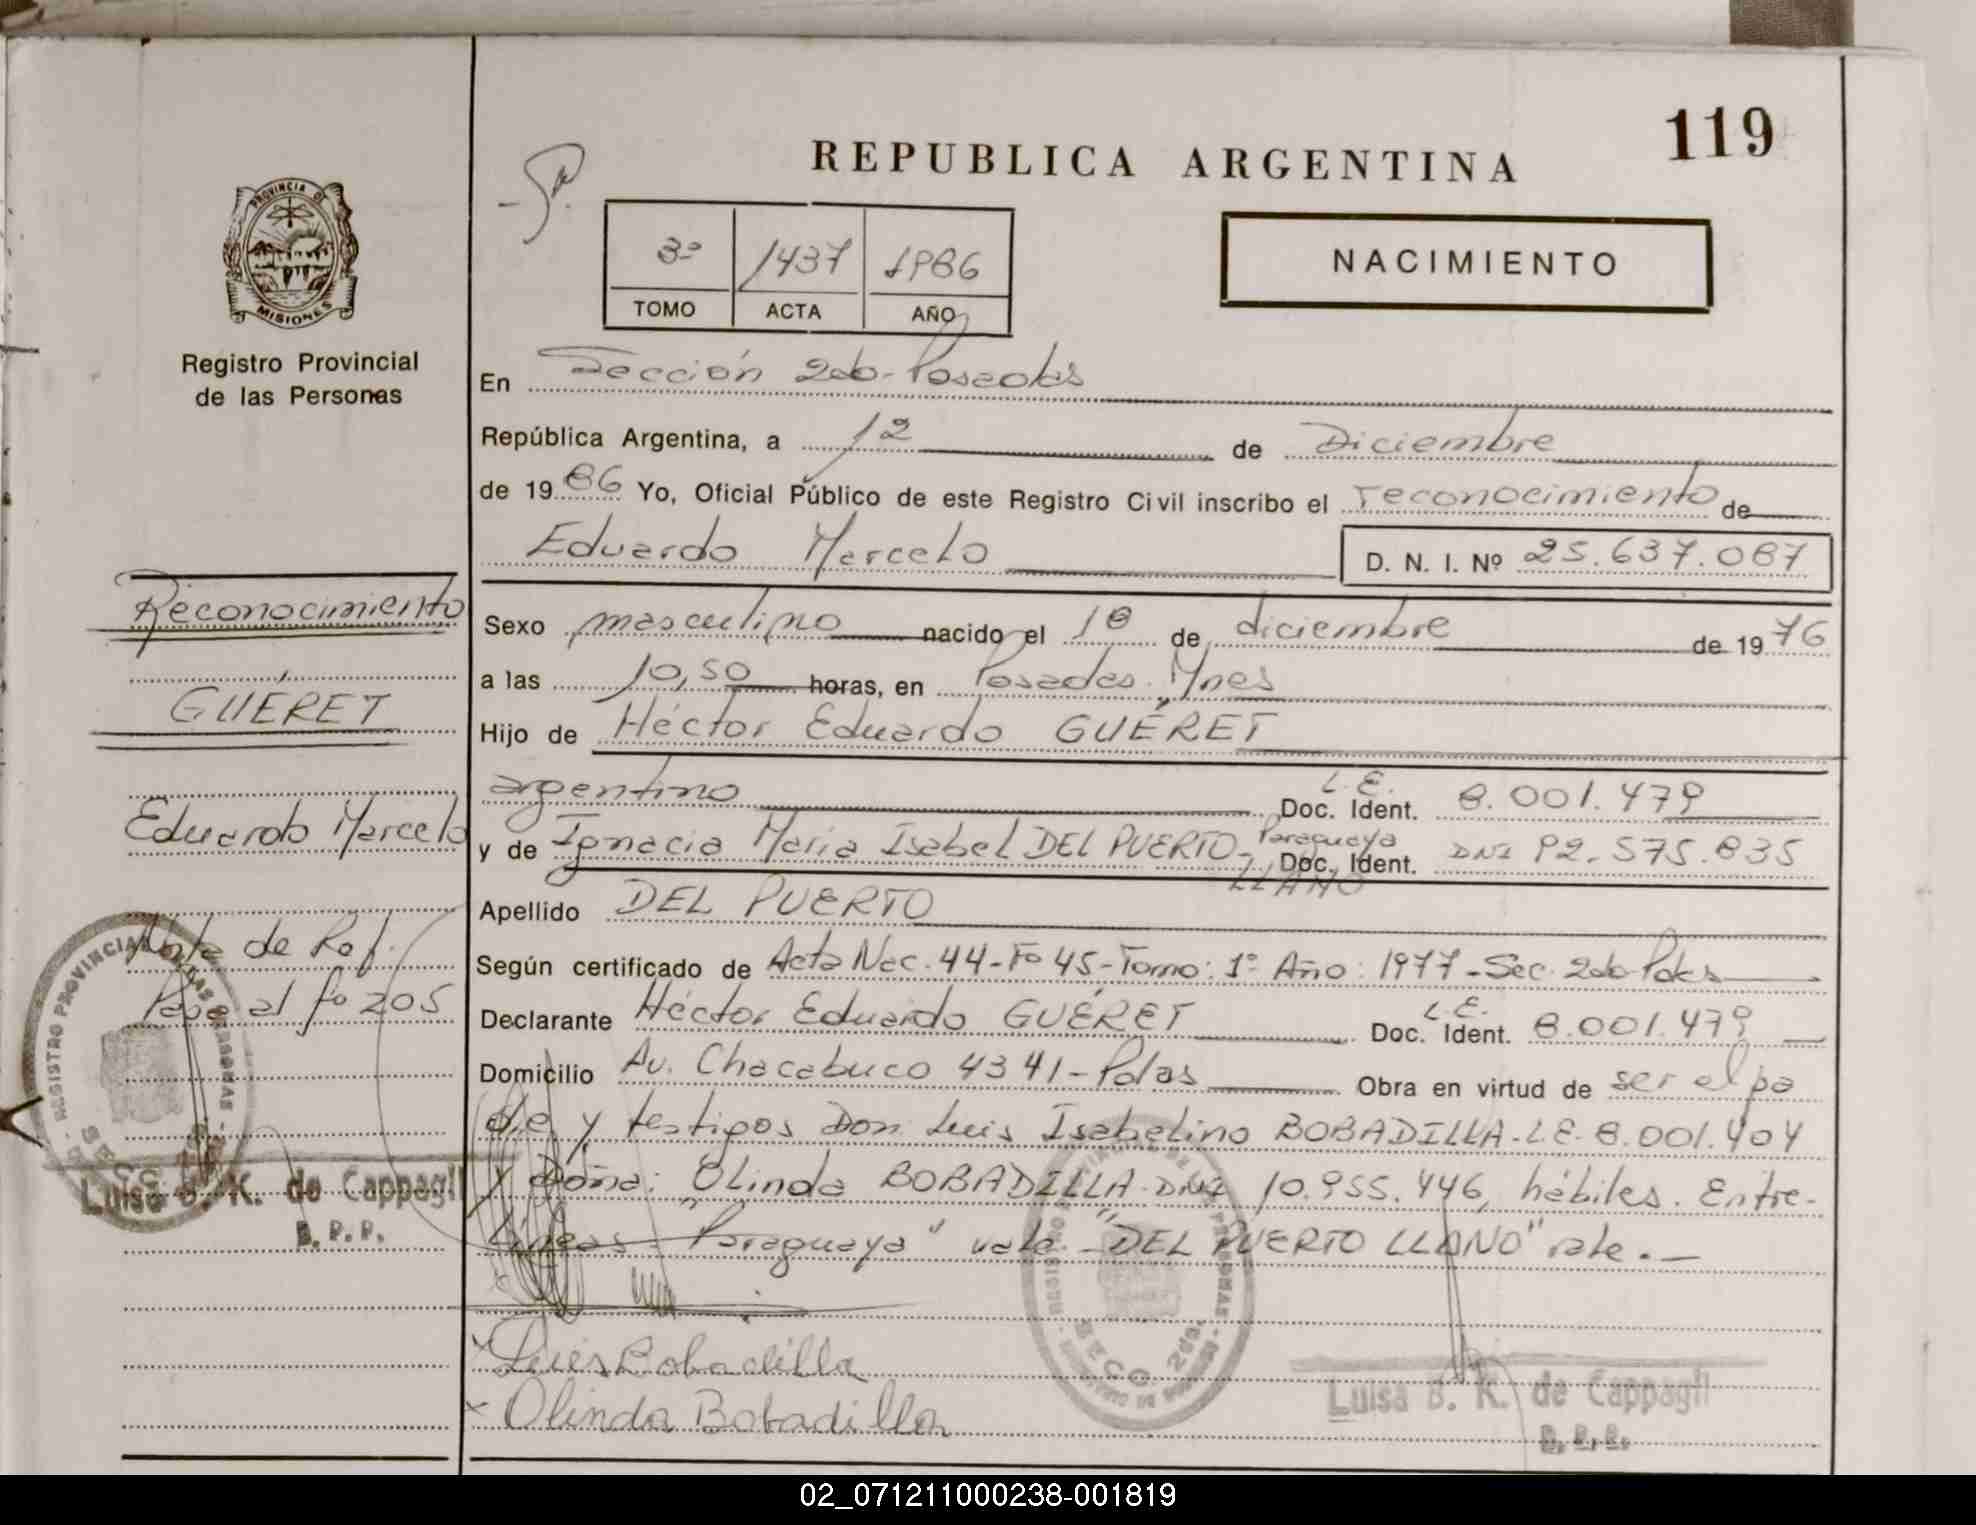 119
REPUBLICA ARGENTINA
PROVINCIA DE
MISIONES
Registro Provincial
de las Personas
3º 1437 1986
TOMO ACTA AÑO
NACIMIENTO
En Sección 2da-Posadas
República Argentina, a 12 de Diciembre
de 1986 Yo, Oficial Público de este Registro Civil inscribo el reconocimiento de
Eduardo Marcelo D. N. I. Nº 25.637.087
Reconocimiento
GUÉRET
Eduardo Marcelo
Nota de Ref.
Pasa al fº 205
Sexo masculino nacido el 18 de diciembre de 1976
a las 10,50 horas, en Posadas. Mnes
Hijo de Héctor Eduardo GUÉRET
argentino L.E. Doc. Ident. 8.001.479
y de Ignacia María Isabel DEL PUERTO- Paraguaya Doc. Ident. DNI 92.575.835
LLANO
Apellido DEL PUERTO
Según certificado de Acta Nac. 44-Fº 45-Tomo: 1º Año: 1977-Sec. 2da-Pdas
Declarante Héctor Eduardo GUÉRET L.E. Doc. Ident. 8.001.479
Domicilio Av. Chacabuco 4341-Pdas Obra en virtud de ser el pa
dre y testigos Don Luis Isabelino BOBADILLA-L.E. 8.001.404
y Doña: Olinda BOBADILLA-DNI 10.955.446, hábiles. Entre-
líneas "Paraguaya" vale-"DEL PUERTO LLANO" vale.-
REGISTRO PROVINCIAL DE LAS PERSONAS
SECC.
Luisa B. K. de Cappagli
D. P. P.
Luis Bobadilla
Olinda Bobadilla
REGISTRO PROVINCIAL DE LAS PERSONAS
SECC. 2da.
Luisa B. K. de Cappagli
D. P. P.
02_071211000238-001819